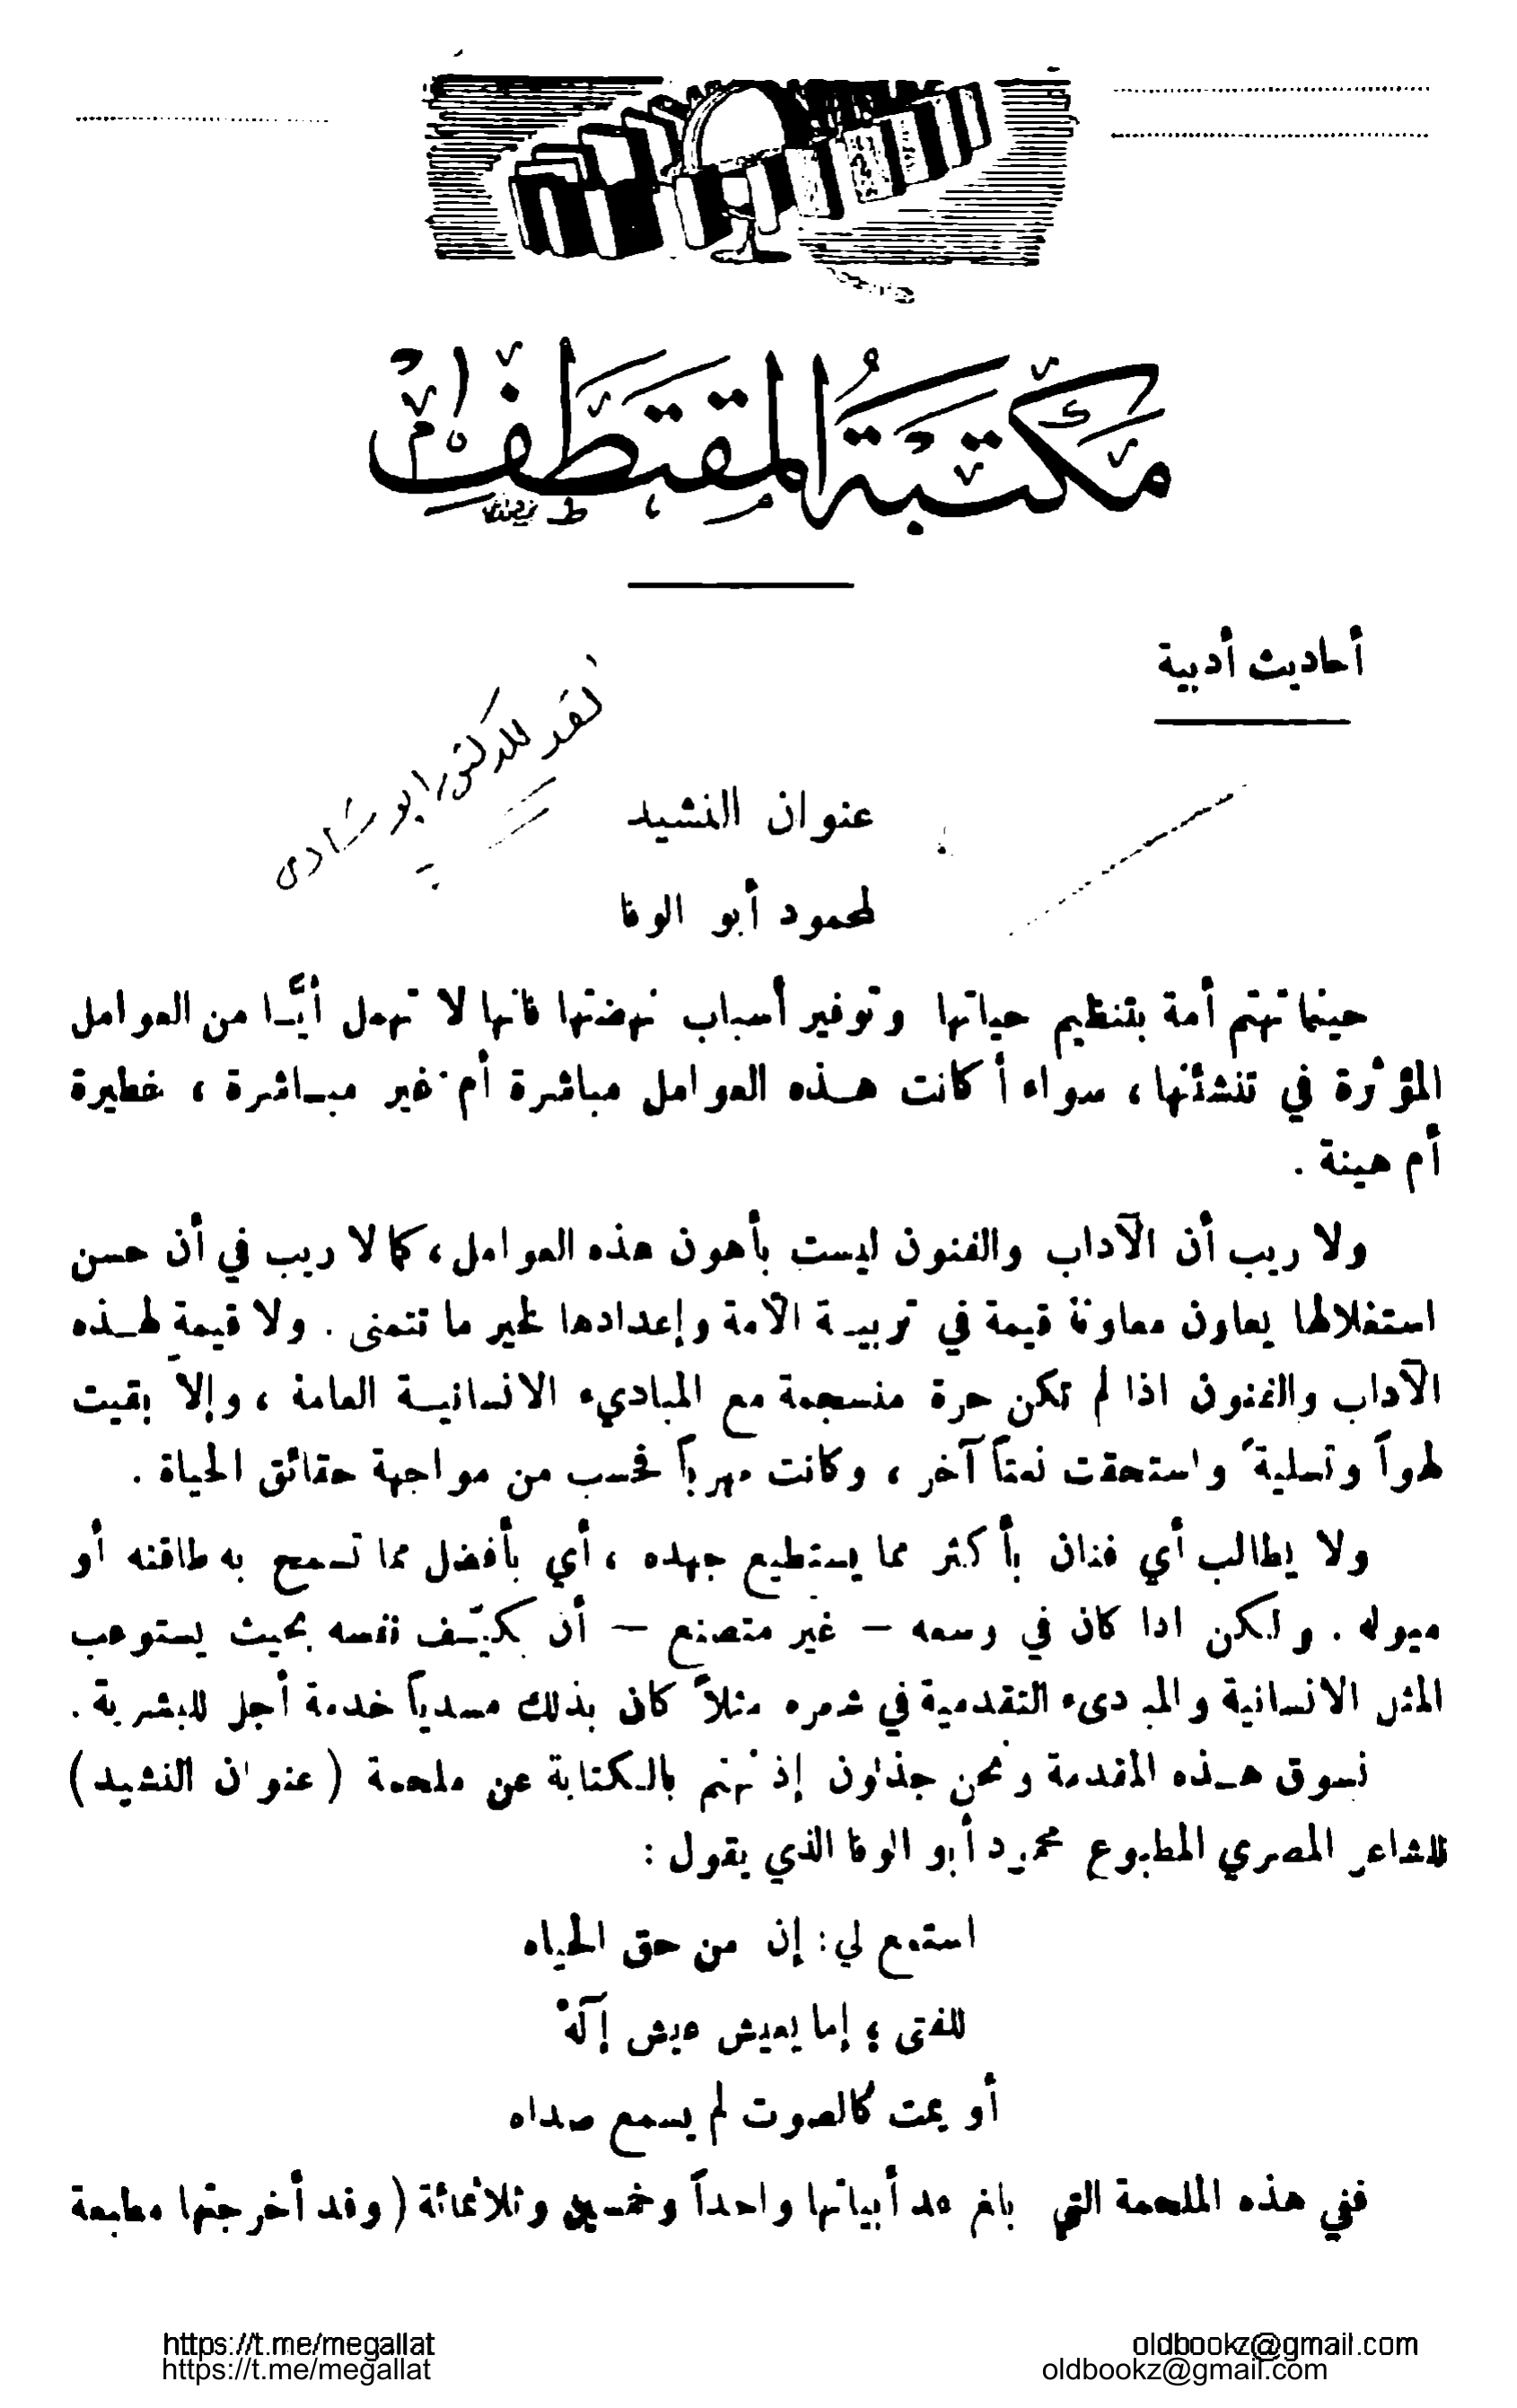 مكتبة المقتطف
أحاديث أدبية
نقد للدكتور ابو شادى
عنوان النشيد
لمحمود أبو الوفا
حينما تهتم أمة بتنظيم حياتها وتوفير أسباب نهضتها فانها لا تهمل أيًّا من العوامل
المؤثرة في تنشئتها، سواء أكانت هذه العوامل مباشرة أم غير مباشرة، خطيرة
أم هينة .
ولا ريب أن الآداب والفنون ليست بأهون هذه العوامل، كما لا ريب في أن حسن
استغلالها يعاون معاونة قيمة في تربية الأمة وإعدادها لخير ما تتمنى . ولا قيمة لهذه
الآداب والفنون اذا لم تكن حرة منسجمة مع المباديء الانسانية العامة ، وإلاّ بقيت
لهواً وتسليةً واستحقت نعتاً آخر ، وكانت مهرباً فحسب من مواجهة حقائق الحياة .
ولا يطالب أي فنان بأكثر مما يستطيع جهده ، أي بأفضل مما تسمح به طاقته أو
ميوله . ولكن اذا كان في وسعه – غير متصنع – أن يكيّف نفسه بحيث يستوعب
المثل الانسانية والمبادىء التقدمية في شعره مثلاً كان بذلك مسدياً خدمة أجل للبشرية .
نسوق هذه المقدمة ونحن جذلون إذ نهتم بالكتابة عن ملحمة (عنوان النشيد)
للشاعر المصري المطبوع محمود أبو الوفا الذي يقول :
استمع لي : إن من حق الحياه
للفتى ؛ إما يعيش عيش إلٓهْ
أو يمت كالصوت لم يسمع صداه
ففي هذه الملحمة التي بلغ عد أبياتها واحداً وخمسين وثلاثمائة (وقد أخرجتها مطبعة
https://t.me/megallat
oldbookz@gmail.com
https://t.me/megallat
oldbookz@gmail.com